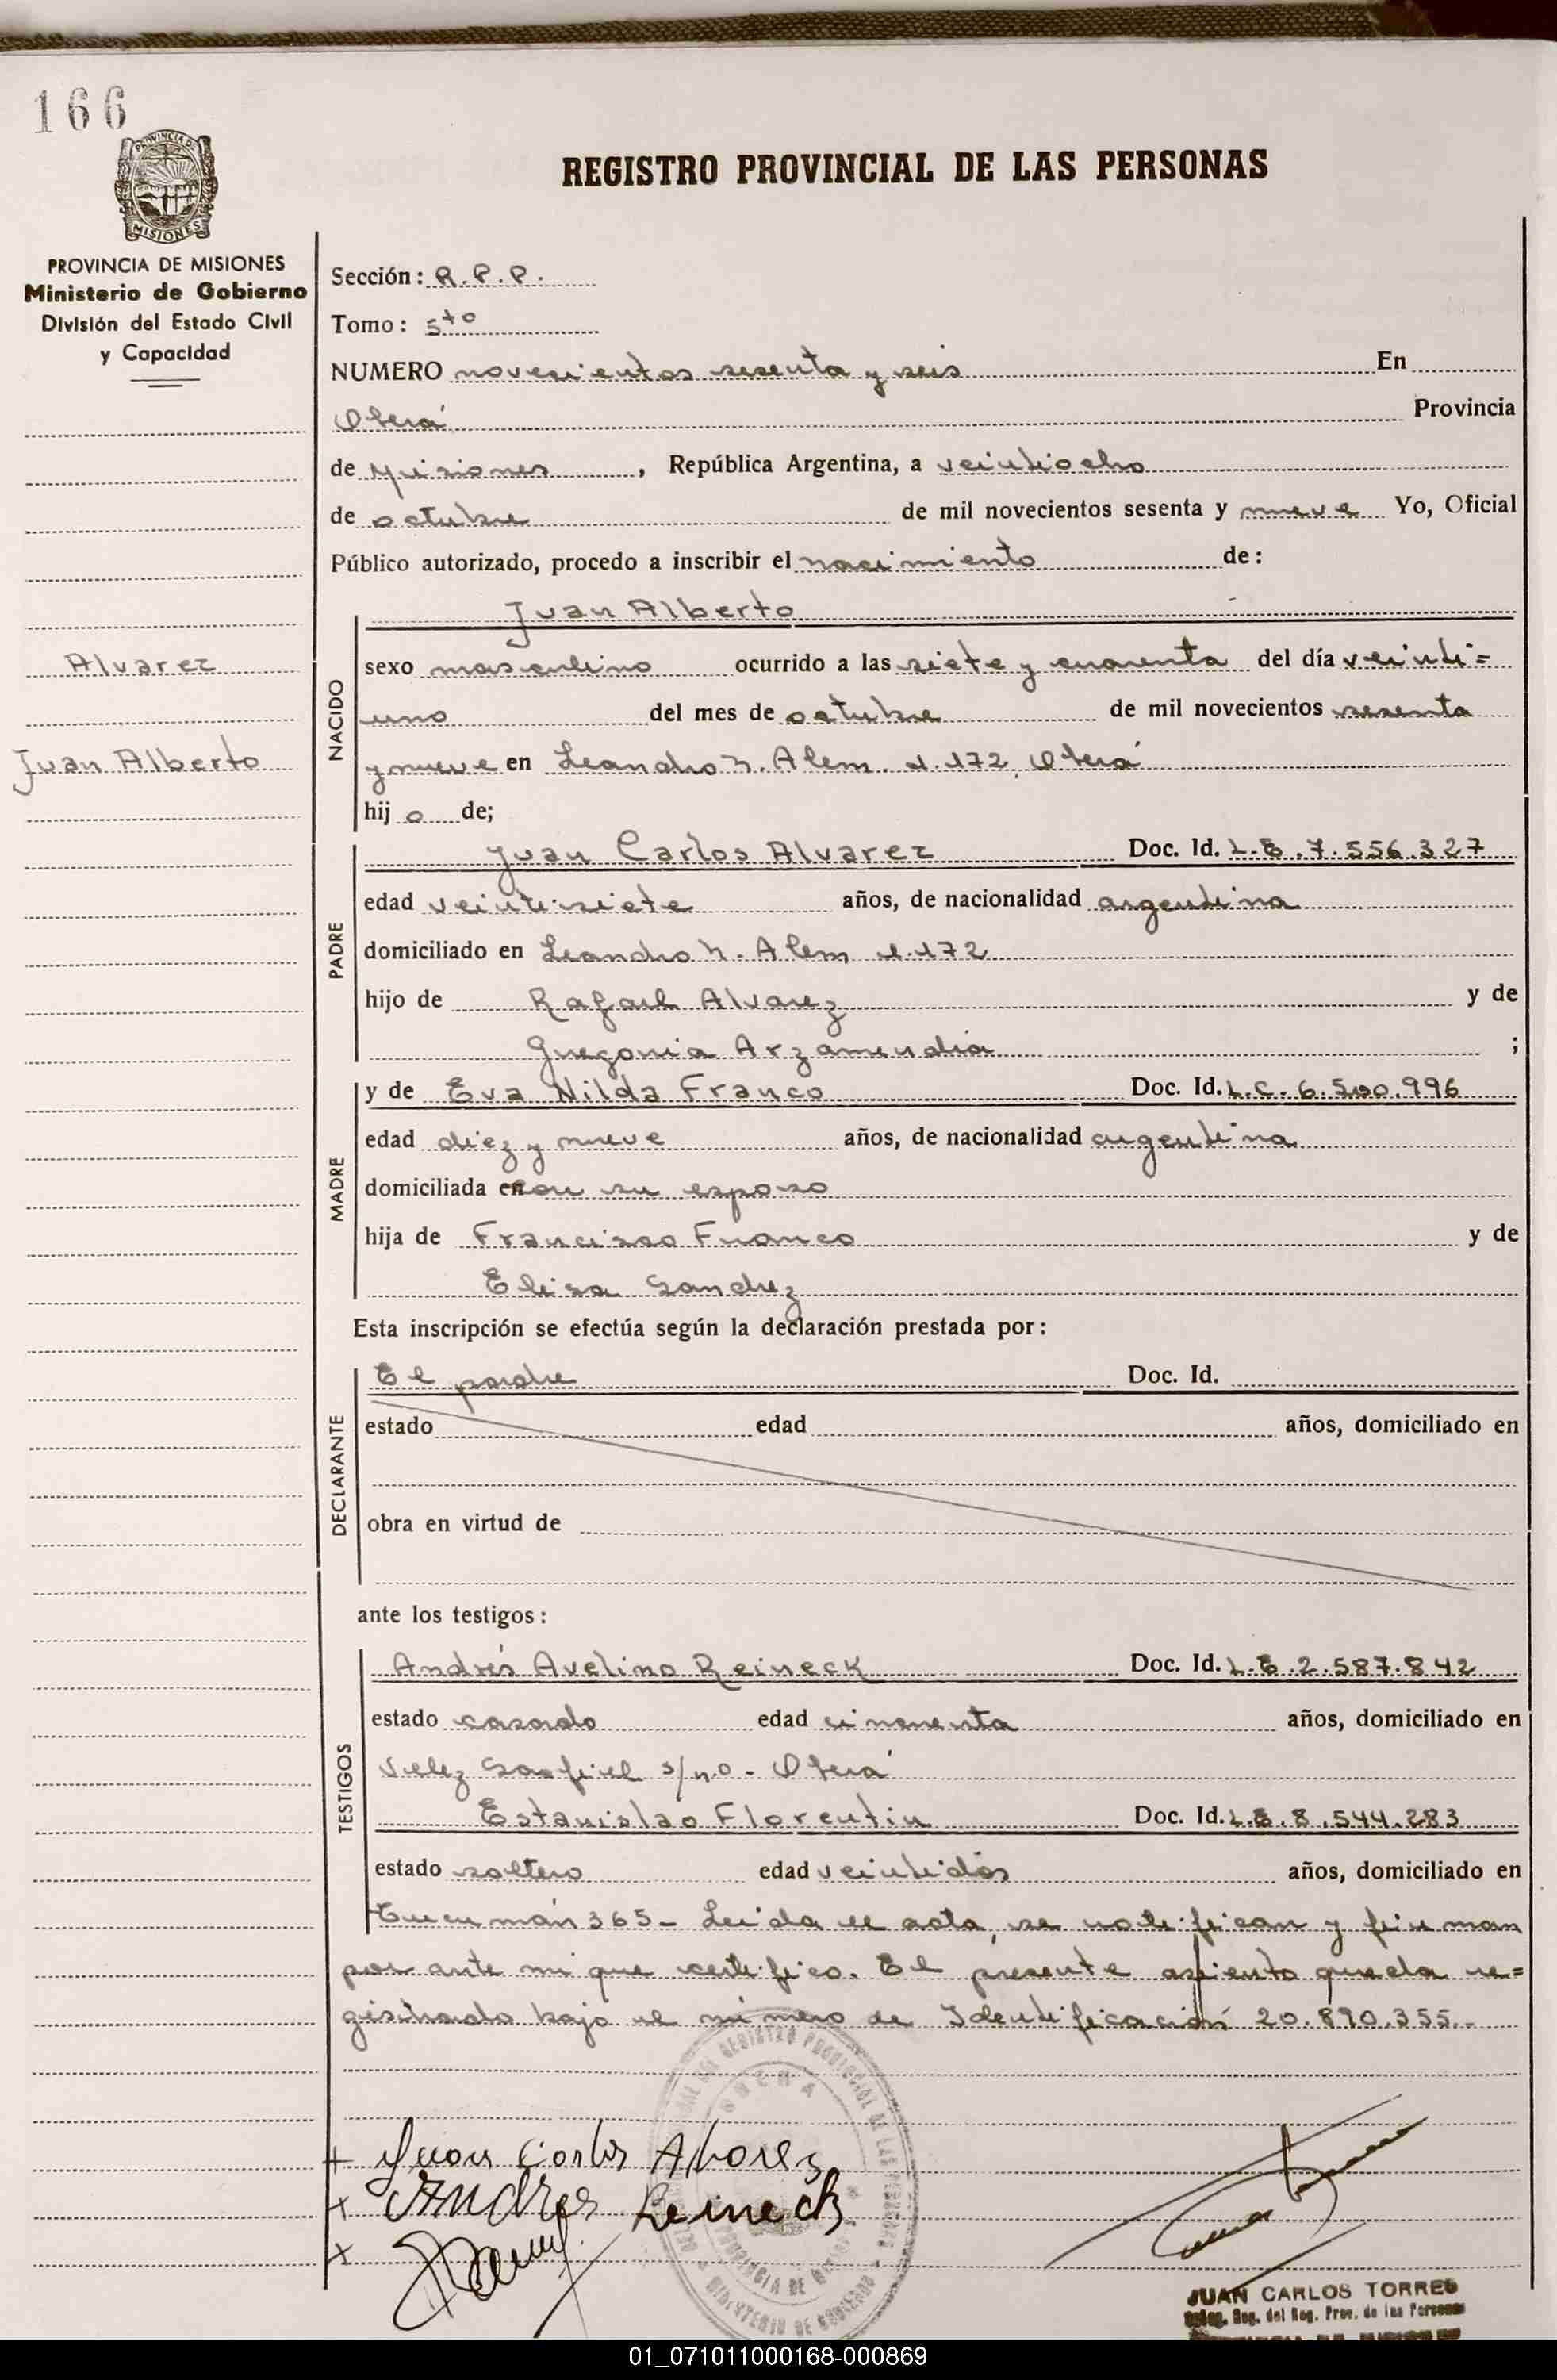 166
PROVINCIA DE
MISIONES
REGISTRO PROVINCIAL DE LAS PERSONAS
PROVINCIA DE MISIONES
Ministerio de Gobierno
División del Estado Civil
y Capacidad
Alvarez
Juan Alberto
Sección: R.P.P.
Tomo: 5to
NUMERO novecientos sesenta y seis En
Oberá Provincia
de Misiones, República Argentina, a veintiocho
de octubre de mil novecientos sesenta y nueve Yo, Oficial
Público autorizado, procedo a inscribir el nacimiento de:
NACIDO
Juan Alberto
sexo masculino ocurrido a las siete y cuarenta del día veinti=
uno del mes de octubre de mil novecientos sesenta
y nueve en Leandro N. Alem 1.172, Oberá
hij o de;
PADRE
Juan Carlos Alvarez Doc. Id. L.E. 7.556.327
edad veintisiete años, de nacionalidad argentina
domiciliado en Leandro N. Alem 1.172
hijo de Rafael Alvarez y de
Gregoria Arzamendia ;
MADRE
y de Eva Nilda Franco Doc. Id. L.C. 6.500.996
edad diez y nueve años, de nacionalidad argentina
domiciliada en con su esposo
hija de Francisco Franco y de
Elisa Sanchez
Esta inscripción se efectúa según la declaración prestada por:
DECLARANTE
El padre Doc. Id.
estado edad años, domiciliado en
obra en virtud de
ante los testigos:
TESTIGOS
Andrés Avelino Reineck Doc. Id. L.E. 2.587.842
estado casado edad cincuenta años, domiciliado en
Velez Sarfield s/n.o - Oberá
Estanislao Florentin Doc. Id. L.E. 8.544.283
estado soltero edad veintidós años, domiciliado en
Tucumán 365 - Leida el acta, se notifican y firman
por ante mi que certifico. El presente asiento queda re=
gistrado bajo el número de Identificación 20.890.355.-
+ Juan Carlos Alvarez
x Andres Reineck
x
OBERA
JUAN CARLOS TORRES
Deleg. Reg. del Reg. Prov. de las Personas
01_071011000168-000869